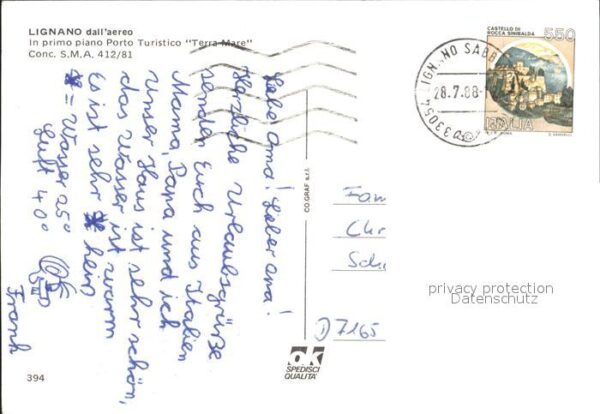 LIGNANO dall'aereo
In primo piano Porto Turistico "Terra Mare"
Conc. S.M.A. 412/81
Liebe Oma! Lieber Opa!
Herzliche Urlaubsgrüße
senden Euch aus Italien
Mama, Papa und ich
Unser Haus ist sehr schön,
das Wasser ist warm
Es ist sehr heiß
* = Wasser 25°
Luft 40°
Frank
394
CO.GRAF s.r.l.
ok
SPEDISCI
QUALITÀ
CASTELLO DI
ROCCA SINIBALDA
550
ITALIA
33054 LIGNANO SABB
28.7.88
Fam
Chr
Sch
D 7165
privacy protection
Datenschutz